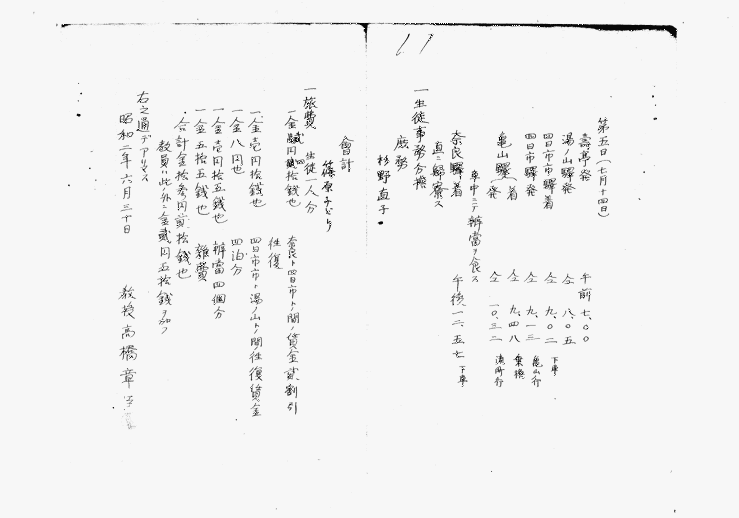 第五日(七月十四日)
壽亭発 午前 七、〇〇
湯ノ山驛発 仝 八、〇五
四日市市驛着 仝 九、〇二 下車
四日市驛発 仝 九、一三 亀山行
亀山驛(着 仝 九、四八 乗換
発 仝 一〇、三二 湊町行
車中ニテ辨當ヲ食ス
奈良驛着 午後、一二、五七 下車
直ニ歸寮ス
一生徒事務分擔
庶務
杉野直子
會計
篠原
一旅費 生徒一人分
一金 円 拾銭也 奈良ト四日市トノ間ノ賃金 割引
往復
一金壱円拾銭也 四日市市ト湯ノ山トノ間ノ往復賃金
一金八円也 四泊分
一金壱円拾五銭也 辨當四個分
一金五拾五銭也 雑費
合計金拾参円 拾銭也
教員ハ此ノ外ニ金貳円五拾銭ヲ加フ
右之通デアリマス
昭和二年六月三十日
教授 高橋章